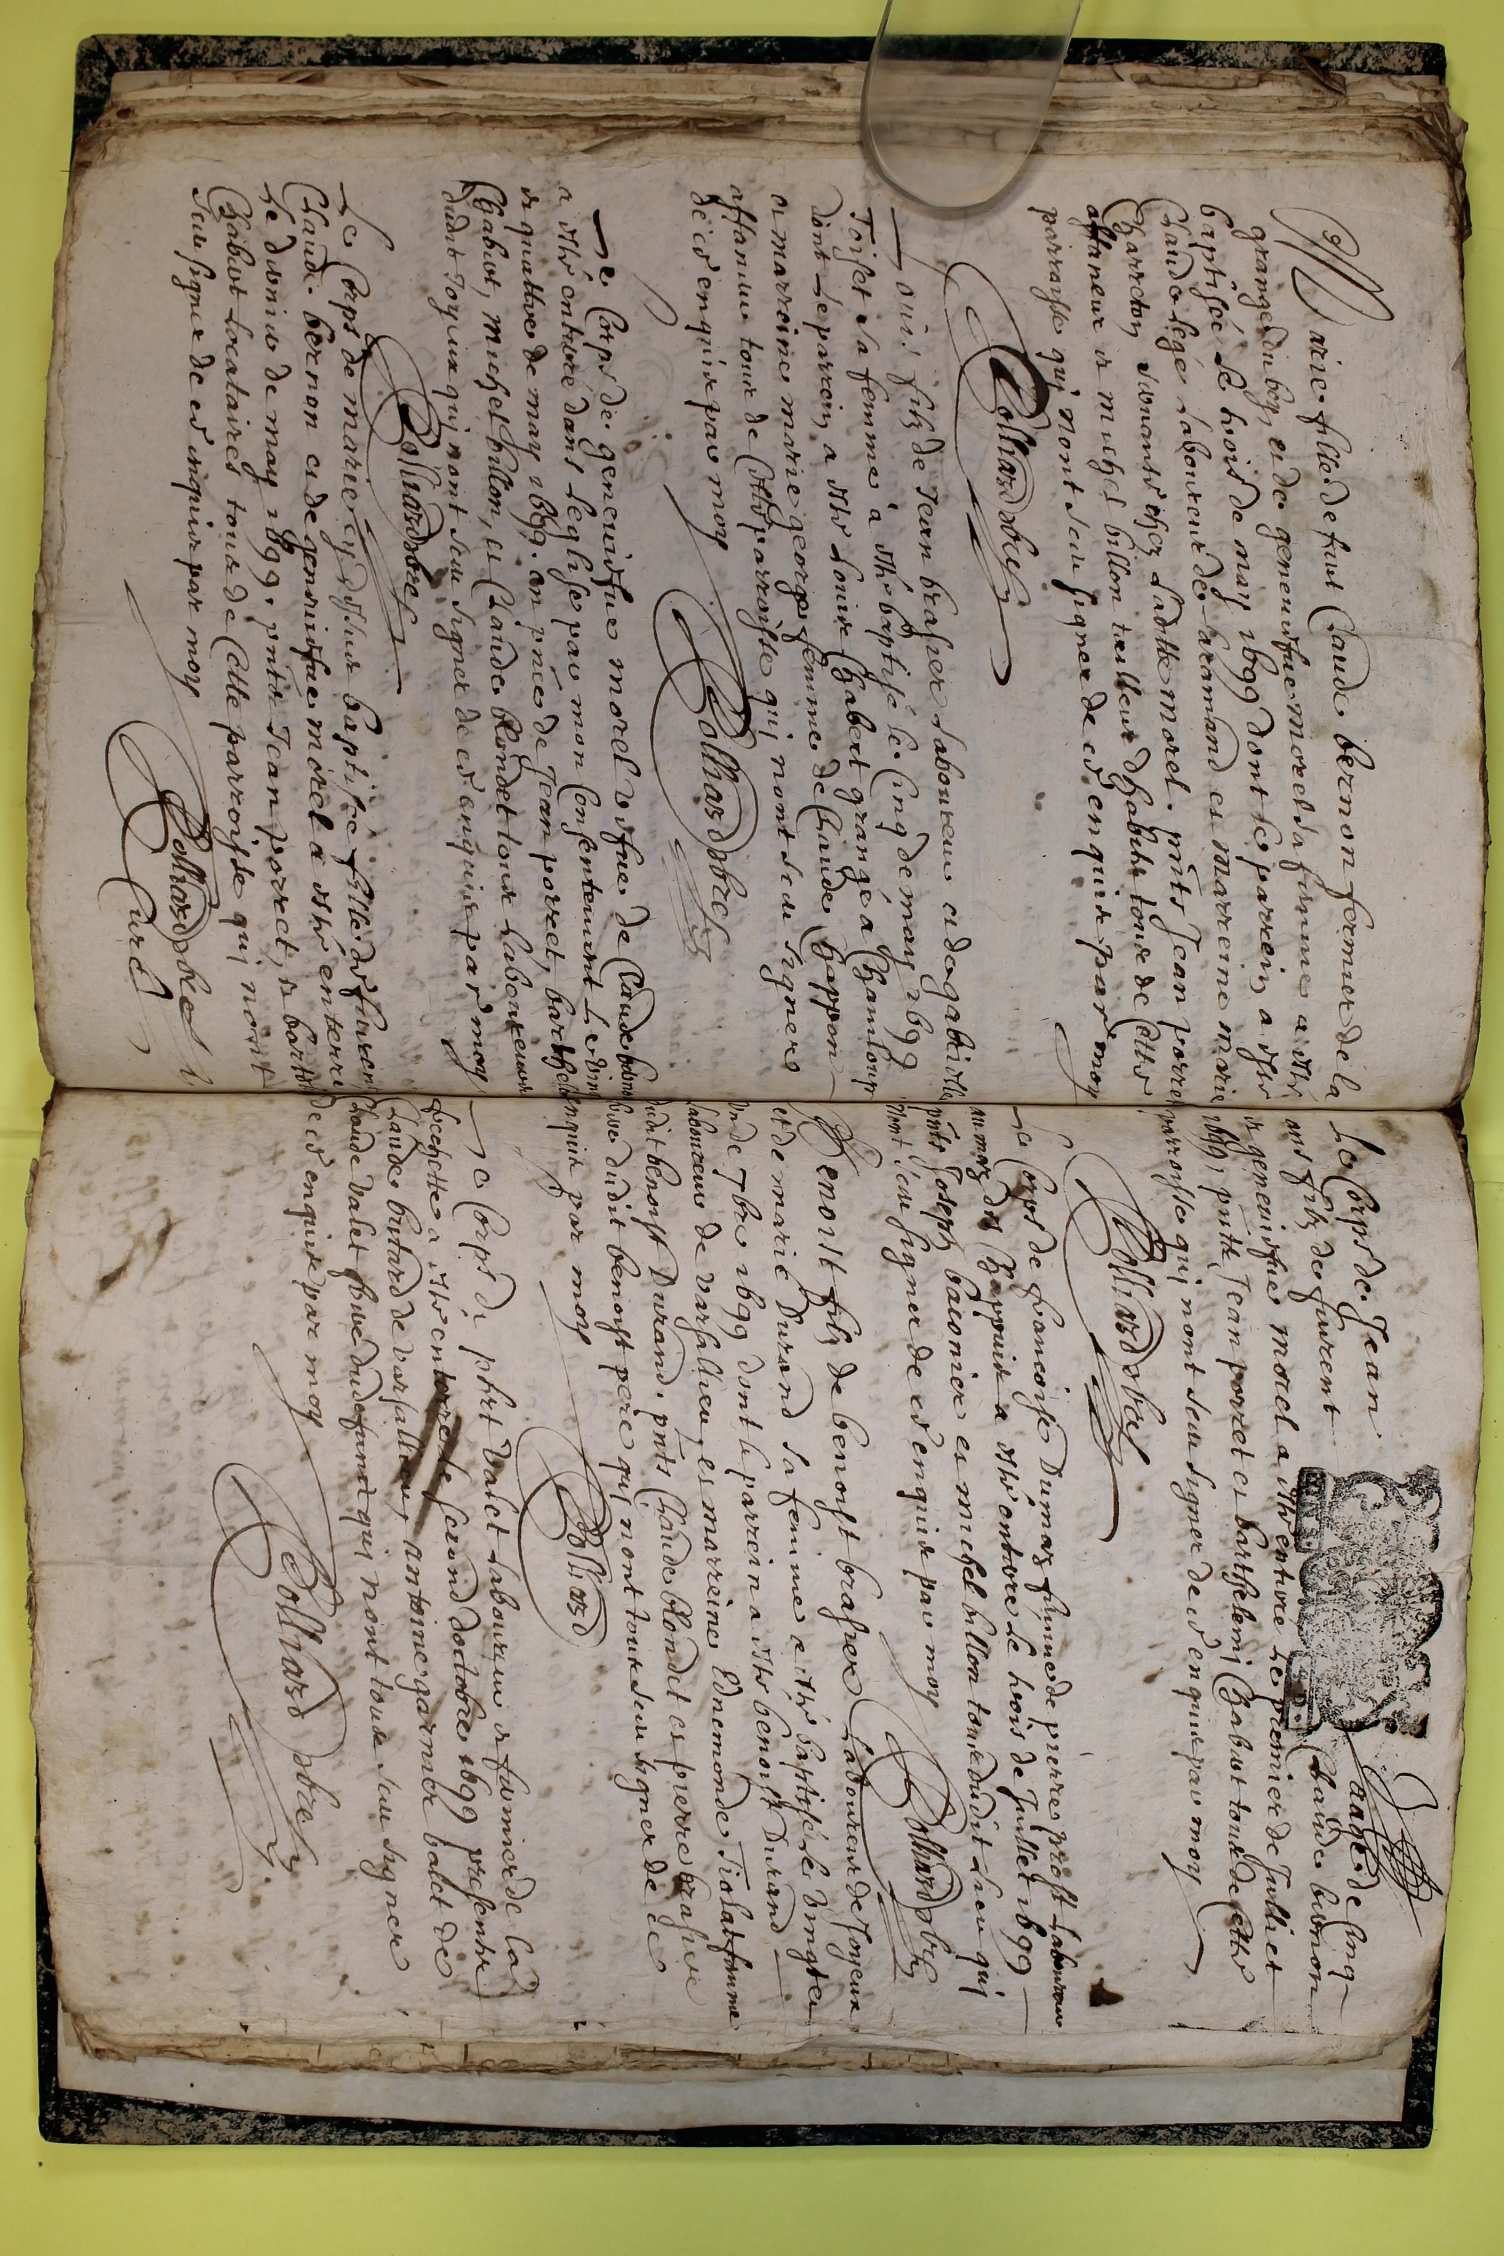 Marie fille de feut Claude bernon fermier de la
grange du boy et de genevefue morel sa femme a este
baptisée le trois de may 1699 dont le parrein a este
Claude legé laboureur de aramand et marreine marie
Charreton servante chez laditte morel. pnts Jean porret
affaneur et michel billon tailleur d'habits tous de cette
parroisse qui n'ont sceu signer de ce enquis par moy
Rolliard pbre
Loüis filz de Jean brasier laboureur et de gabrielle
Toiset sa femme a este baptisé le cinq de may 1699
dont le parrein a este Louis Chabert grangé a Chamloup
et marreine marie george femme de Claude Chappon
affaneur tous de cette parroisse qui n'ont sceu signer
de ce enquis par moy
Rolliard pbre
Le Corps de genevefue morel vefue de Claude bernon
a esté enterré dans leglise par mon consentement le vint
et quattre de may 1699. en pnce de Jean porret, barthelemi
Chabert, michel billon, et Claude blondet tous laboureurs
dudit Joyeux qui n'ont sceu signer de ce enquis par moy
Rolliard pbre
Le Corps de marie cy dessus baptisee fille de
Claude bernon et de genevefue morel a esté enterré
le dernier de may 1699. pnts Jean porret, et
Chabert locataires tous de cette parroisse qui n'ont
sceu signer de ce enquis par moy
Rolliard pbre
Curé
Le Corps de Jean aagé de cinq
ans filz de furent Claude bernon
et genevefue morel a esté enterré le premier de Juilliet
1699, pnts Jean porret et barthelemi Chabert tous de cette
parroisse qui n'ont sceu signer de ce enquis par moy
Rolliard pbre
Le Corps de francoise Dumas femme de pierre prost laboureur
au mas des a esté enterré le trois de Juillet 1699
pnts Joseph baconier et michel billon tous dudit lieu qui
n'ont sceu signer de ce enquis par moy
Rolliard pbre
Benoist filz de benoist brasier laboureur de Joyeux
et de marie Durand sa femme a esté baptisé le vingt et
un de 7bre 1699 dont le parrein a este benoist Durand
laboureur de varsallieu, et marreine Ednemonde femme
dudit benoist Durand. pnts Claude blondet et pierre brasier
frere dudit benoist pere qui n'ont tous sceu signer de ce
enquis par moy
Rolliard
Le Corps de phbt valet laboureur et fermier de la
a este enterré le second doctobre 1699 presents
Claude butard de varsallieu, antoine garnier valet de
Claude valet frere dudefunct qui n'ont tous sceu signer
de ce enquis par moy
Rolliard pbre